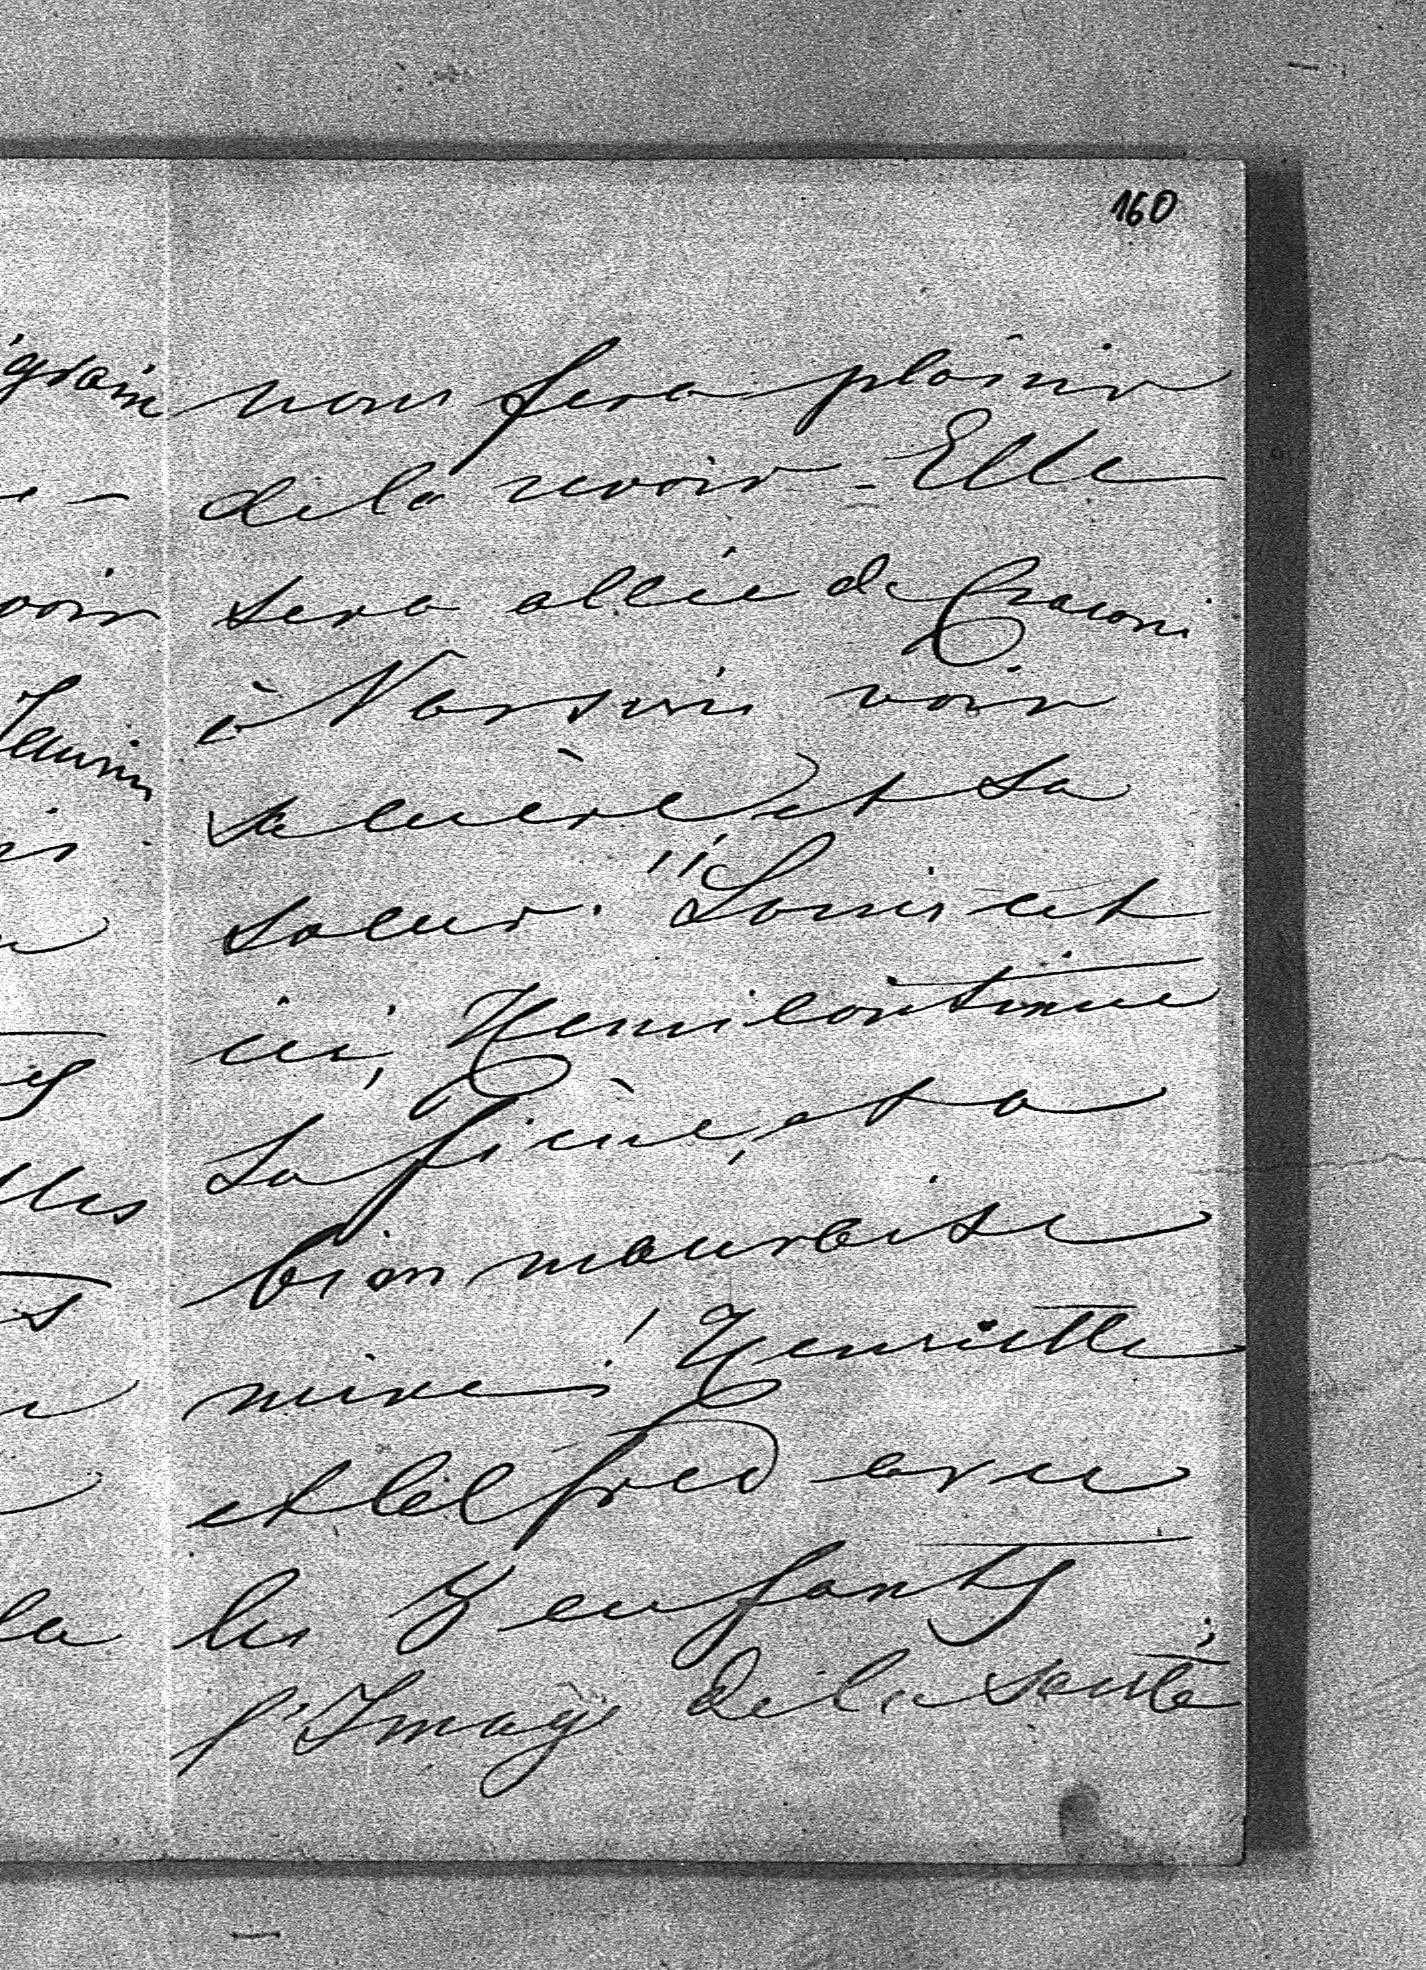 160
nous fera plaisir
de la revoir – Elle
sera allée de Cracovi
à Varsovie voir
sa mère, et sa
soeur. "Louis est
ici, Henri continue
sa fièvre, et a
bien mauvaise
mine; Henriette
et Alfred avec
les 3 enfants
l'Image de la santé;